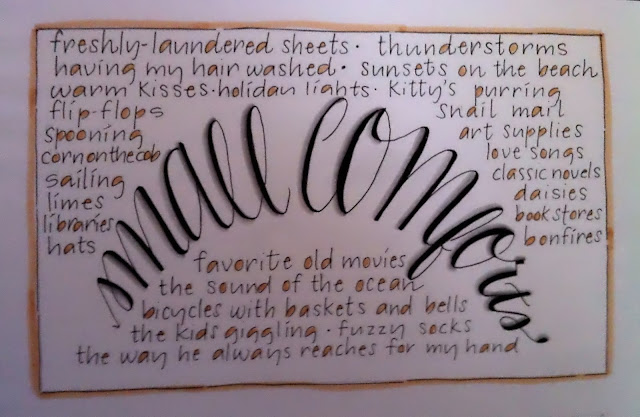 freshly-laundered sheets · thunderstorms
having my hair washed · sunsets on the beach
warm kisses · holiday lights · Kitty's purring
flip-flops
snail mail
spooning
art supplies
corn on the cob
love songs
sailing
classic novels
limes
daisies
libraries
book stores
hats
bonfires
small comforts
favorite old movies
the sound of the ocean
bicycles with baskets and bells
the kids giggling · fuzzy socks
the way he always reaches for my hand